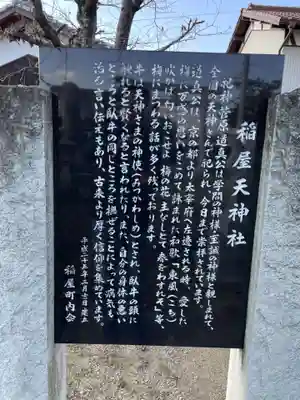 稲屋天神社
祀神菅原道真公は学問の神様、至誠の神様と親しまれて、
全国の天神さんで祀られ、今日まで崇拝されています
道真公が、京の都より太宰府へ左遷される時、愛した
梅に万感の思いをこめて詠まれた和歌、「東風(こち)
吹かば匂いおこせよ 梅の花主なしとて 春をわすれそ」等、
梅にまつわる話が多く残っております。
牛は天神さまの神使(みつかわしめ)とされ、臥牛の頭に
触れると賢くなると言われたり、また、自分の身体の悪い
ところと臥牛の同じところを撫ぜることによって病気も
治ると言い伝えもあり、古来より厚く信仰を集めています。
平成二十五年二月吉日建立
稲屋町内会